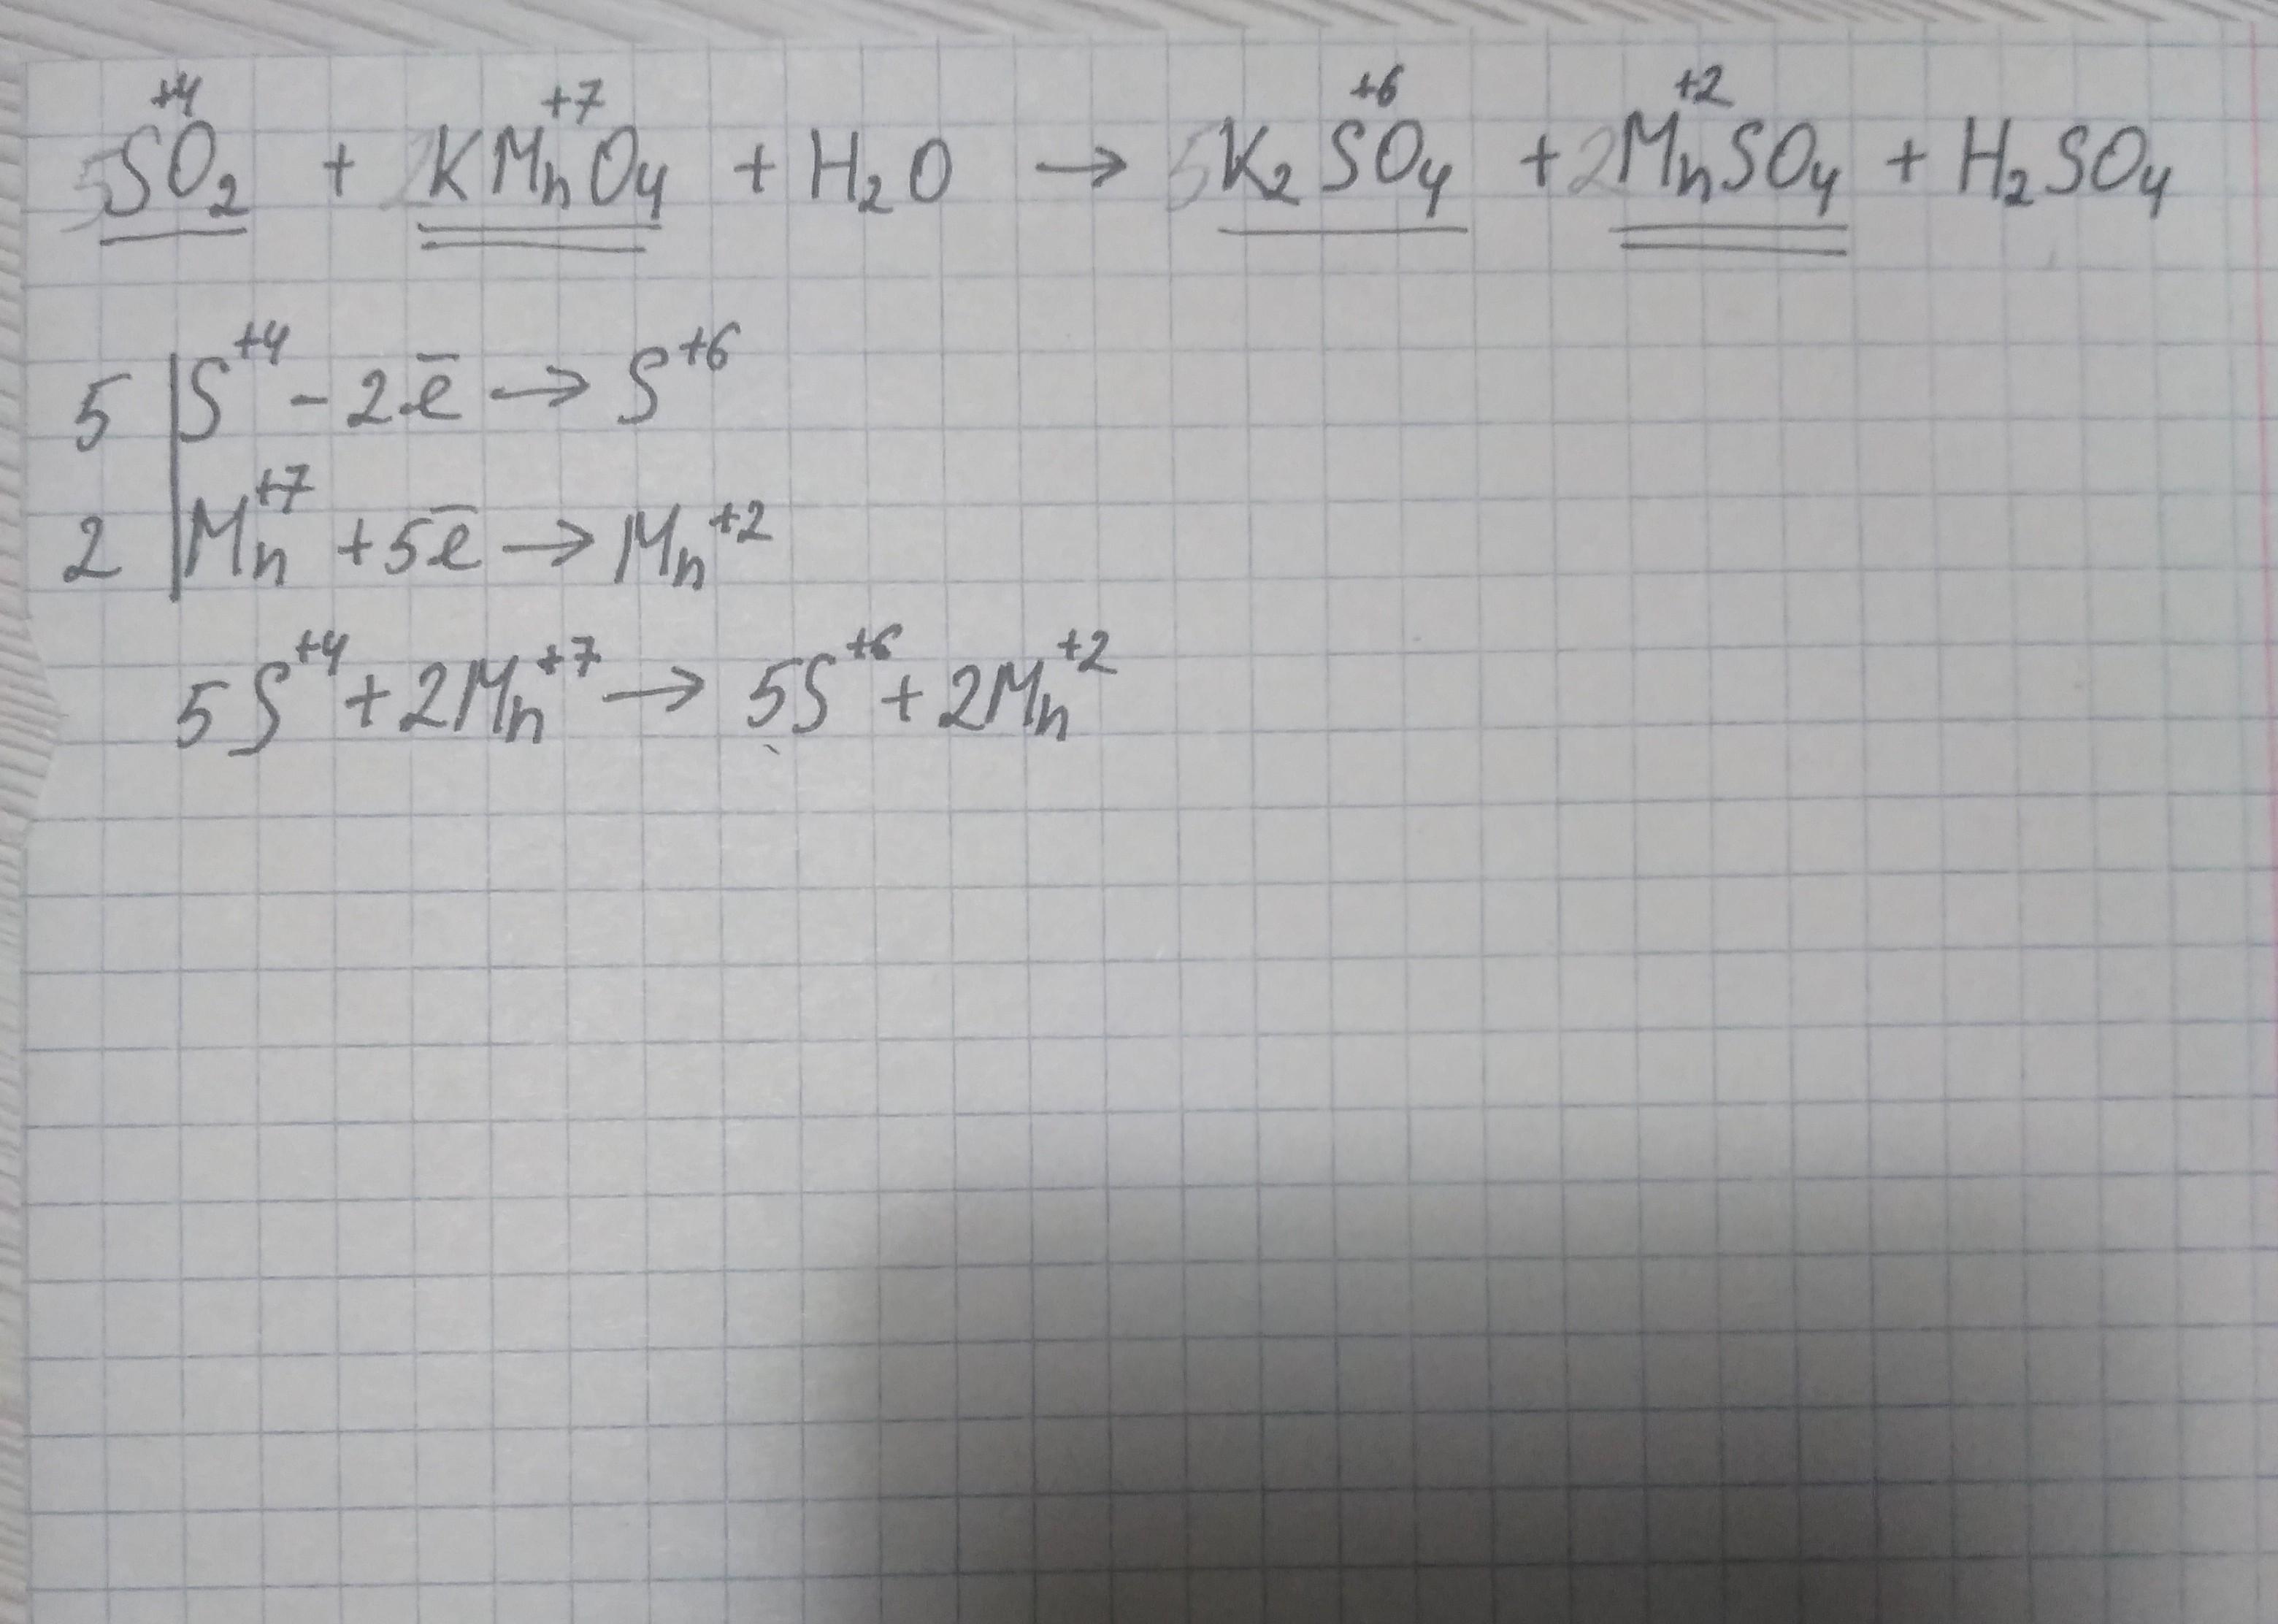 +4 +7 +6 +2
5SO₂ + 2KMnO₄ + H₂O → 5K₂SO₄ + 2MnSO₄ + H₂SO₄
5 | S⁺⁴ - 2ē → S⁺⁶
2 | Mn⁺⁷ + 5ē → Mn⁺²
5S⁺⁴ + 2Mn⁺⁷ → 5S⁺⁶ + 2Mn⁺²